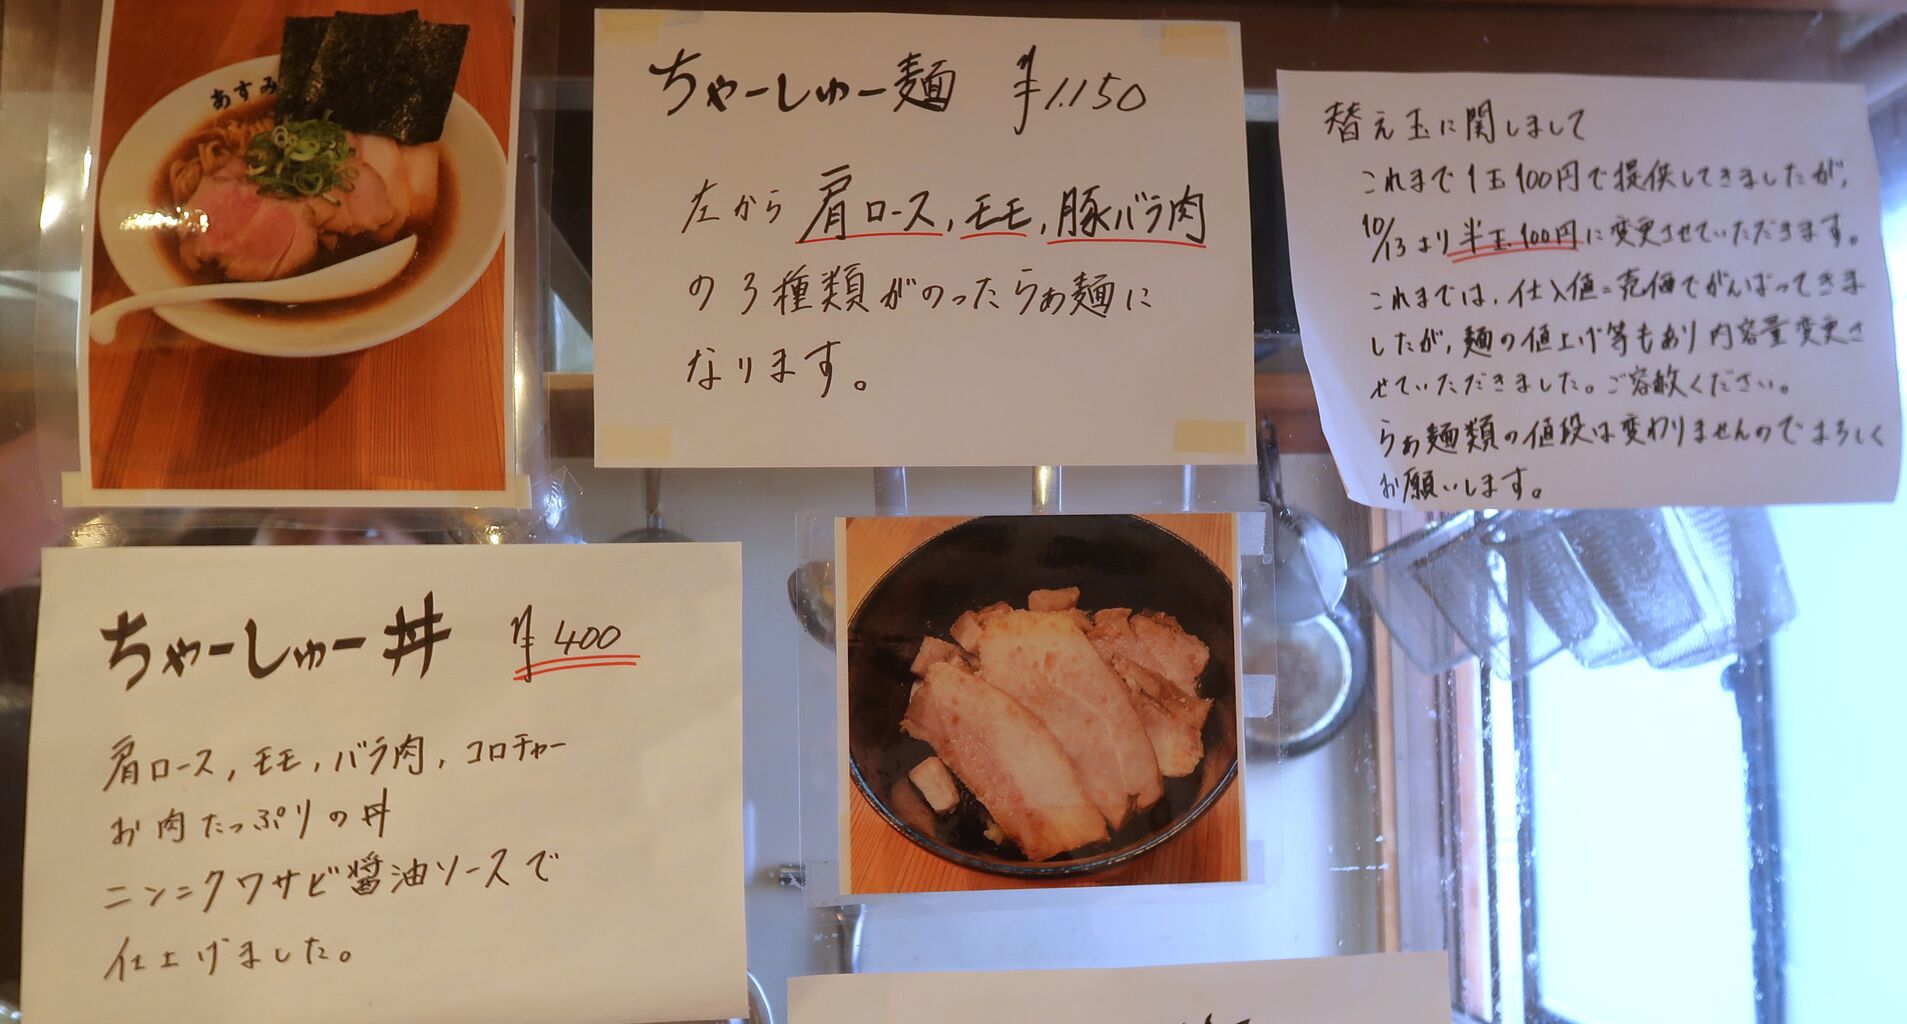 あすみ
ちゃーしゅー麺 ¥1.150
左から肩ロース,モモ,豚バラ肉
の3種類がのったらぁ麺に
なります。
替え玉に関しまして
これまで1玉100円で提供してきましたが,
10/13より半玉100円に変更させていただきます。
これまでは,仕入値=売価でがんばってきま
したが,麺の値上げ等もあり内容量変更さ
せていただきました。ご容赦ください。
らぁ麺類の値段は変わりませんのでよろしく
お願いします。
ちゃーしゅー丼 ¥400
肩ロース,モモ,バラ肉,コロチャー
お肉たっぷりの丼
ニンニクワサビ醤油ソースで
仕上げました。